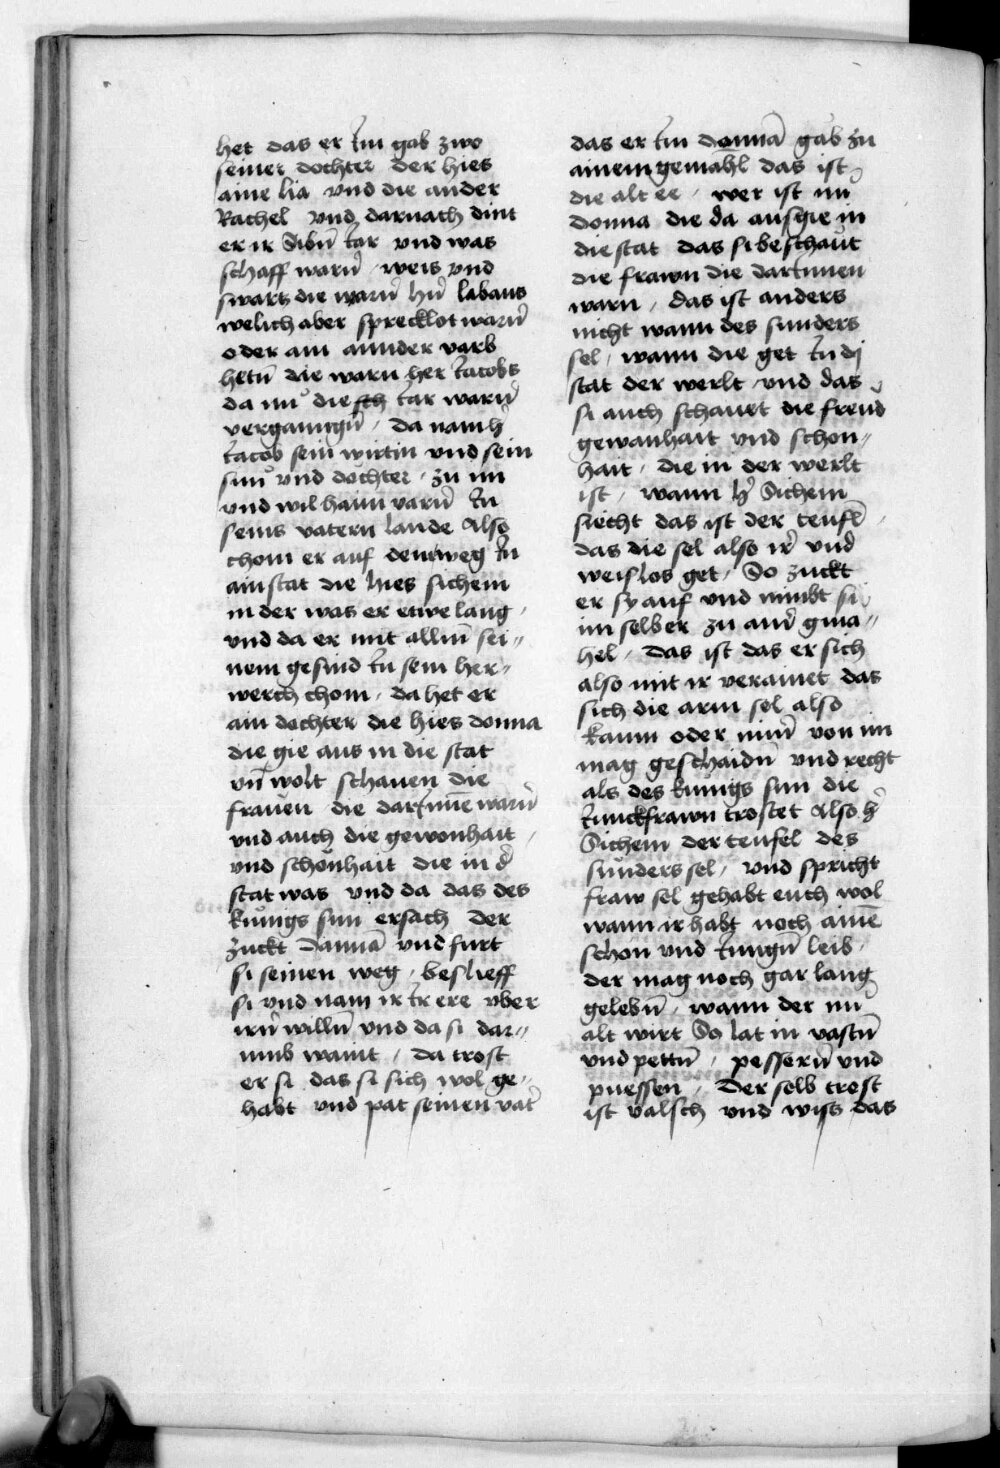 het das er im gab zwo
seiner dochter der hies
aine lia vnd die ander
Rachel vnd darnach dint
er ir Sibn̄ iar vnd was
schaff warn̄ / weis vnd
swarts die warn̄ hn̄ labans
welich aber sprecklot warn̄
oder ain annder varb
hetn̄ die warn her iacobs
da nů die sch iar warn̄
vergangn̄ / da nam h̄
iacob sein wirtin vnd sein
sun̊ vnd dochter / zu im
vnd wil haim varn̄ in
seins vatern lande Also
chom er auf dem weg in
ain stat die hies sichem
in der was er etwe lang /
vnd da er mit allm̄ sei〃
nem gesind in sein her〃
werch chom / da het er
ain dochter die hies donna
die gie aus in die stat
vn̄ wolt schauen die
frauen die darinne warn̄
vnd auch die gewonhait /
vnd schonhait die in d̄
stat was vnd da das des
kunigs sun ersach der
zuckt Dannā vnd furt
si seinen weg / beslieff
si vnd nam ir ir ere vber
irn̄ willn̄ vnd da si dar〃
umb waint / da trost
er si das si sich wol ge〃
habt vnd pat seinen vat̄
das er im donnā gab zu
ainem gemahl das ist
die alt ee / wer ist nu
donna die da ausgie in
die stat das si beschaut
die frawn die darinnen
warn / das ist anders
nicht wann des sunders
sel / wann die get in dj
stat der werlt vnd das
si auch schauet die freud
gewanhait vnd schon〃
hait / die in der werlt
ist / wann h̄ Sichem
siecht das ist der teufl̄ /
das die sel also ir̄ vnd
weislos get / So zuckt
er sy auf vnd nimbt si
im selber zu ain̄ gma〃
hel / das ist das er sich
also mit ir verainet das
sich die arm sel also
kaum oder nim̄ von im
mag geschaidn̄ vnd recht
als des kunigs sun die
iunckfrawn trostet Also h̄
Sichem der teufel des
sunders sel / vnd spricht
fraw sel gehabt euch wol
wann ir habt noch ainē
schon vnd iungn̄ leib /
der mag noch gar lang
gelebn̄ / wann der nu
alt wirt So lat in vastn̄
vnd pettn̄ / pessern̄ vnd
puessen / Der selb trost
ist valsch vnd wiss das